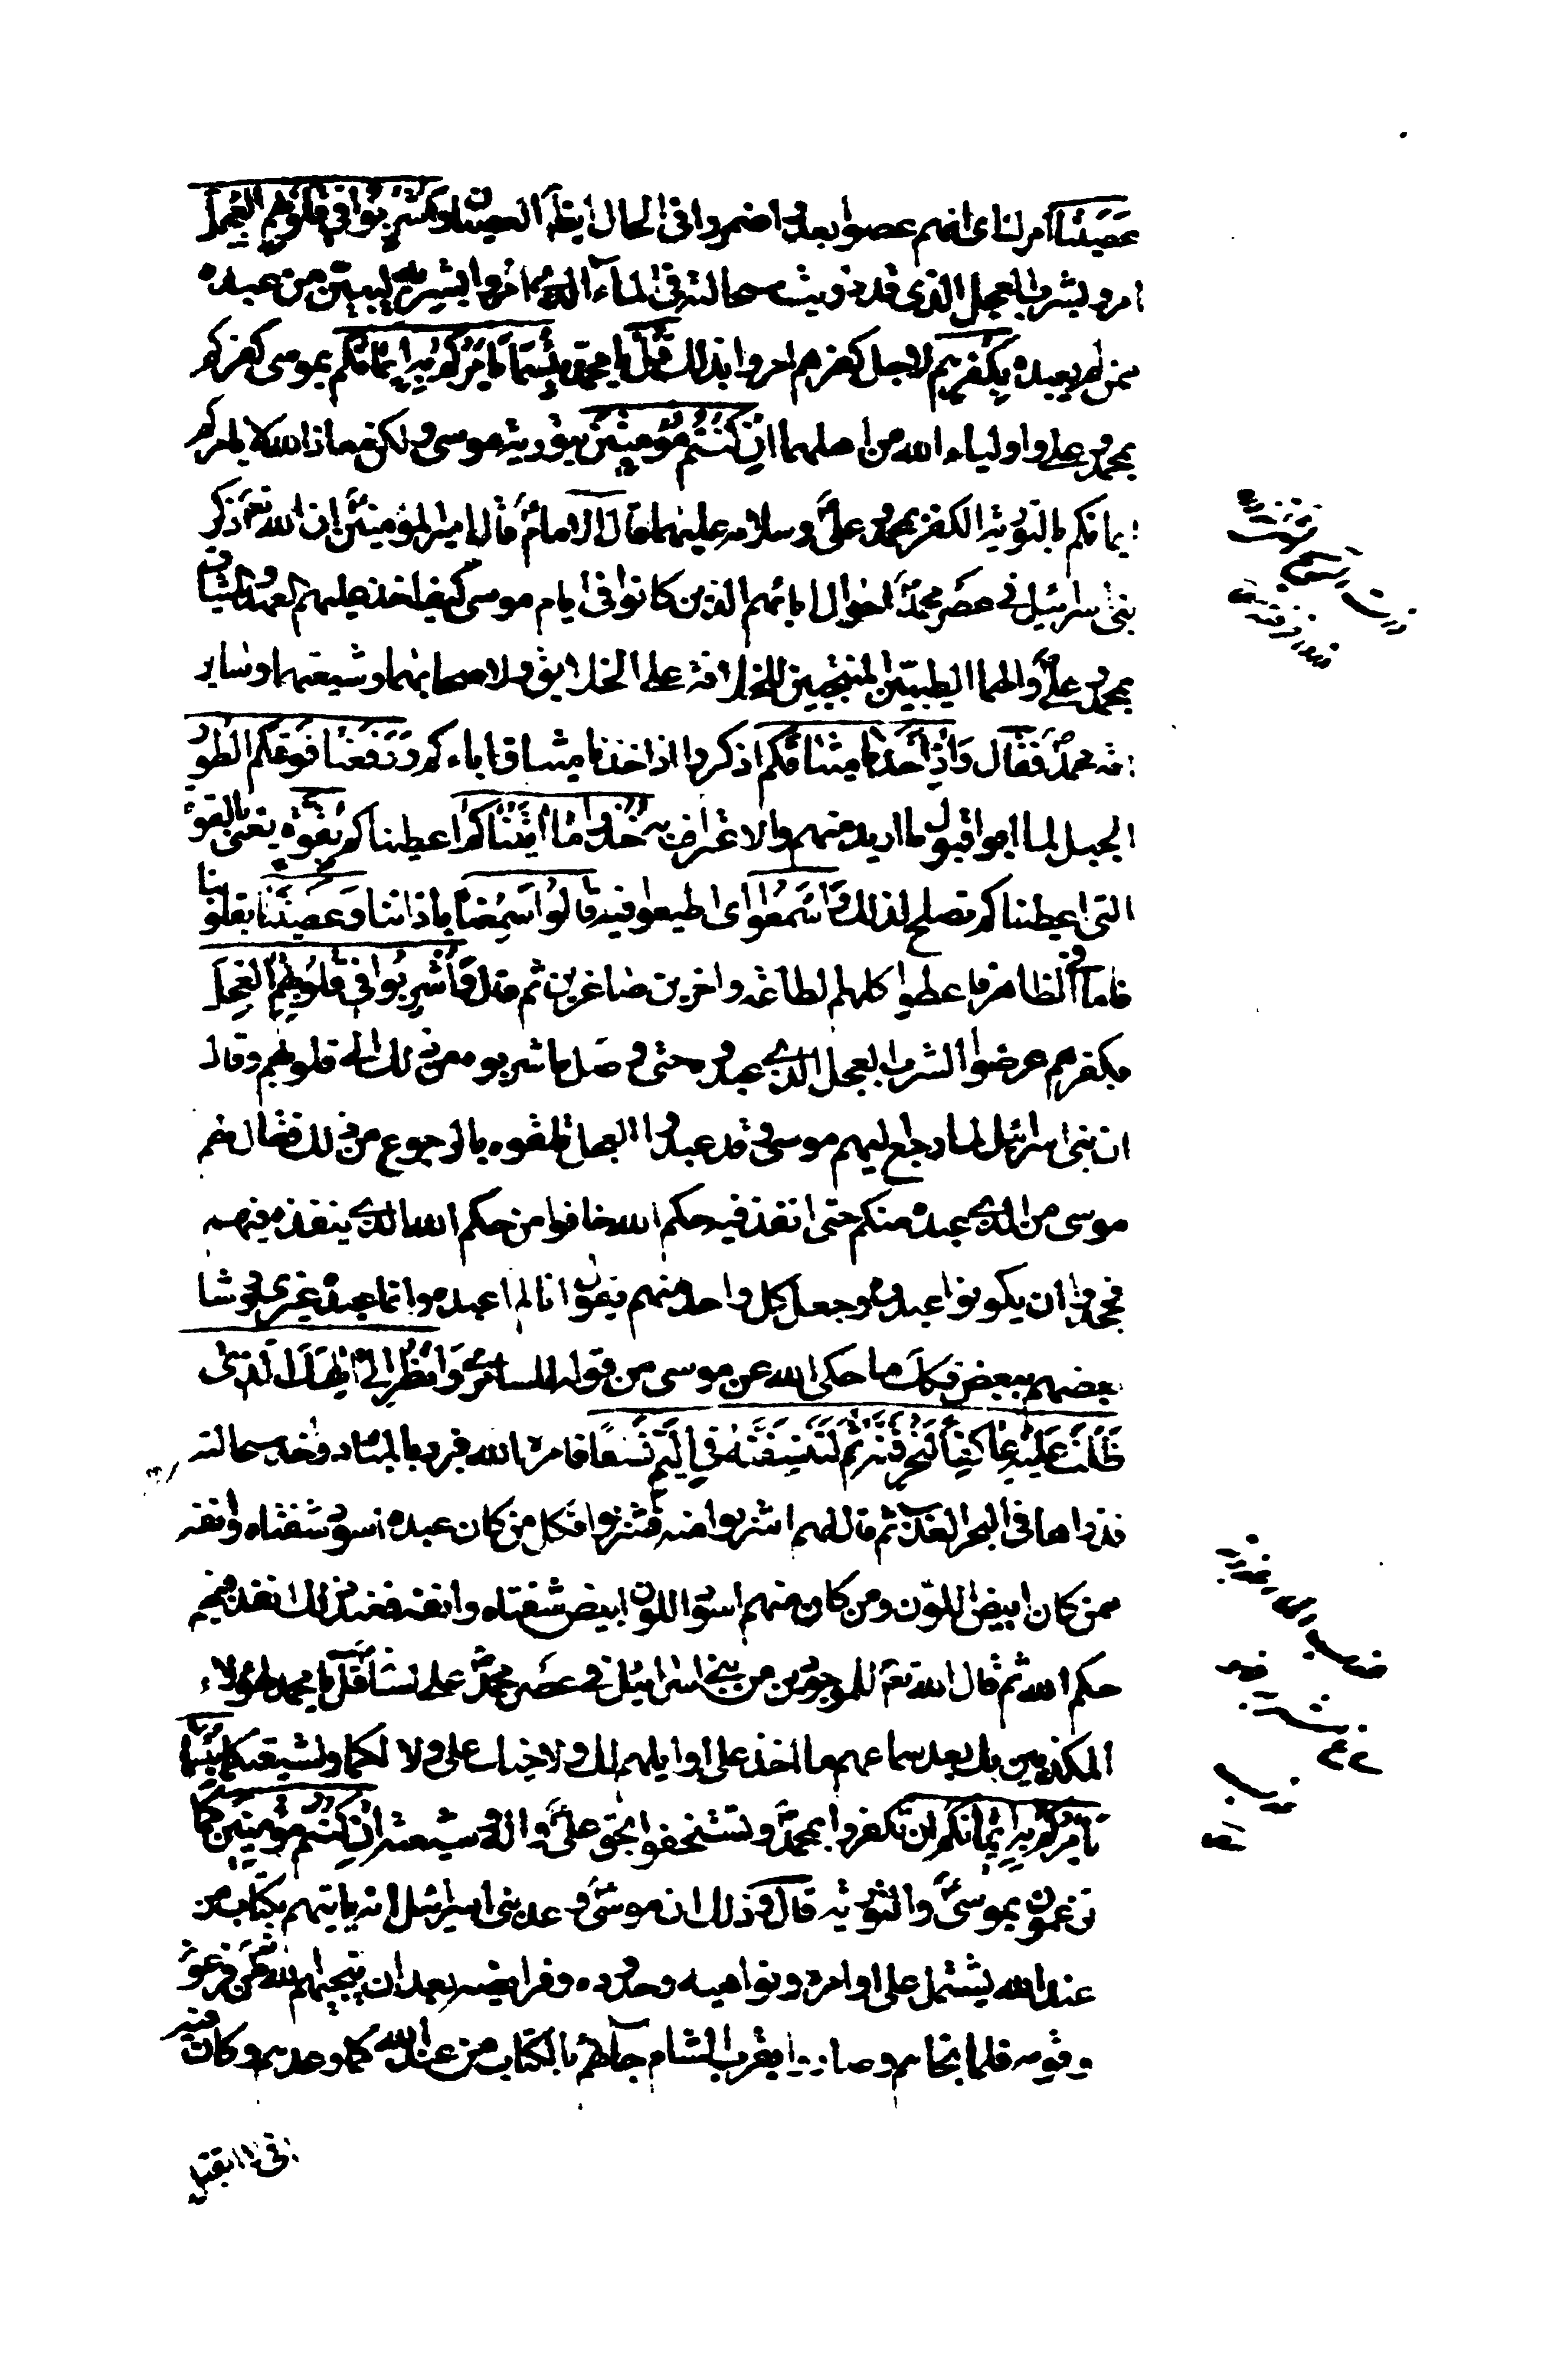 عَصَيْنٰا امرنا اى انهم عصوا بعد و اضمروا فى الحال ايضاً العصيان وَاُشْرِبُوا فِى قُلُوبِهِمُ الْعِجْلَ
امروا بشرب العجل الذى قد ذريت سحالته فى الماء الذى امروا بشربه ليبين من عبده
ممن لم يعبده بِكُفْرِهِم لاجل كفرهم امروا بذلك قُلْ يا محمد بِئْسَمٰا يَاْمُرُكُمْ بِهِ اِيمٰانُكُم بموسى كفركم
بمحمد و على و اولياء الله من اهلهما اِنْ كُنْتُمْ مُؤْمِنِينَ بتورية موسى و لكن معاذ الله لا يامركم
ايمانكم بالتورية الكفر بمحمد و على و سلامه عليهما قال الامام قال امير المؤمنين ان الله تعم ذكر
بنى اسرائيل فى عصر محمد احوال ابائهم الذين كانوا فى ايام موسى كيف اخذ عليهم العهد و الميثاق
بمحمد و على و الهما الطيبين المنتجبين للخلافة على الخلايق و لاصحابهما و شيعتهما و ساير
امة محمد فقال وَاِذْ اَخَذْنٰا مِيثٰاقَكُم اذكروا اذ اخذنا ميثاق اباءكم وَرَفَعْنٰا فَوْقَكُمُ الطُّورَ
الجبل لما ابوا قبول ما اريد منهم و الاعتراف به خُذُوا مٰا اٰتَيْنٰاكُم اعطيناكم بِقُوَّةٍ يعنى بالقوة
التى اعطيناكم تصلح لذلك وَاسْمَعُوا اى اطيعوا فيه قٰالُوا سَمِعْنٰا باذاننا وَعَصَيْنٰا بقلوبنا
فاما فى الظاهر فاعطوا كلهم الطاعة داخرين صاغرين ثم قال وَاُشْرِبُوا فِى قُلُوبِهِمُ الْعِجْلَ
بكفرهم عرضوا لشرب العجل الذى عبدوه حتى وصل ما شربوه من ذلك الى قلوبهم و قال
ان بنى اسرائيل لما رجع اليهم موسى و قد عبدوا العجل تلقوه بالرجوع عن ذلك فقال لهم
موسى من الذى عبده منكم حتى انفذ فيه حكم الله خافوا من حكم الله الذى ينفذه فيهم
فجحدوا ان يكونوا عبدوه و جعل كل واحد منهم يقول انا لم اعبده و انما عبده غيرى و وشا
بعضهم ببعض فكذلك ما حكى الله عن موسى من قوله للسامرى وَانْظُرْ اِلٰى اِلٰهِكَ الَّذِى
ظَلْتَ عَلَيْهِ عٰاكِفاً لَنُحَرِّقَنَّهُ ثُمَّ لَنَنْسِفَنَّهُ فِى الْيَمِّ نَسْفاً فامره الله فبرده بالمبارد و اخذ سحالته
فذراها فى البحر العذب ثم قال لهم اشربوا منه فشربوا فكل من كان عبده اسود شفتاه و انفه
ممن كان ابيض اللون و من كان منهم اسود اللون ابيض شفتاه و انفه فعند ذلك انفذ فيهم
حكم الله ثم قال الله تعم للموجودين من بنى اسرائيل فى عصر محمد على لسانه قُلْ يا محمد لهؤلاء
المكذبين بك بعد سماعهم ما اخذ على اوايلهم لك و لاخيك على و لالكما و لشيعتكما بِئْسَمٰا
يَاْمُرُكُمْ بِهِ اِيمٰانُكُم ان تكفروا بمحمد و تستخفوا بحق على و اله و شيعته اِنْ كُنْتُمْ مُؤْمِنِينَ كما
تزعمون بموسى و التورية قال و ذلك ان موسى و عد بنى اسرائيل انه ياتيهم بكتاب من
عند الله يشتمل على اوامره و نواهيه و حدوده و فرايضه بعد ان ينجيهم الله من فرعون
و قومه فلما نجاهم و صاروا بقرب الشام جاءهم بالكتاب من عند الله كما وعدهم و كان فيه